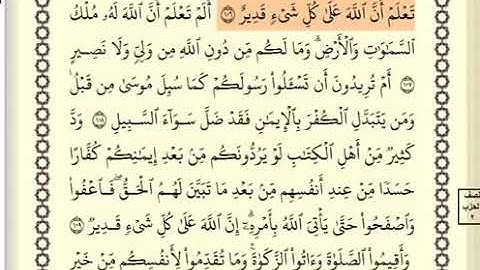 تَعْلَمْ أَنَّ ٱللَّهَ عَلَىٰ كُلِّ شَىْءٍ قَدِيرٌ ١٠٦ أَلَمْ تَعْلَمْ أَنَّ ٱللَّهَ لَهُۥ مُلْكُ
ٱلسَّمَٰوَٰتِ وَٱلْأَرْضِ ۗ وَمَا لَكُم مِّن دُونِ ٱللَّهِ مِن وَلِىٍّ وَلَا نَصِيرٍ
١٠٧ أَمْ تُرِيدُونَ أَن تَسْـَٔلُوا۟ رَسُولَكُمْ كَمَا سُئِلَ مُوسَىٰ مِن قَبْلُ ۗ
وَمَن يَتَبَدَّلِ ٱلْكُفْرَ بِٱلْإِيمَٰنِ فَقَدْ ضَلَّ سَوَآءَ ٱلسَّبِيلِ ١٠٨ وَدَّ
كَثِيرٌ مِّنْ أَهْلِ ٱلْكِتَٰبِ لَوْ يَرُدُّونَكُم مِّنۢ بَعْدِ إِيمَٰنِكُمْ كُفَّارًا
حَسَدًا مِّنْ عِندِ أَنفُسِهِم مِّنۢ بَعْدِ مَا تَبَيَّنَ لَهُمُ ٱلْحَقُّ ۖ فَٱعْفُوا۟
وَٱصْفَحُوا۟ حَتَّىٰ يَأْتِىَ ٱللَّهُ بِأَمْرِهِۦٓ ۗ إِنَّ ٱللَّهَ عَلَىٰ كُلِّ شَىْءٍ قَدِيرٌ ١٠٩
وَأَقِيمُوا۟ ٱلصَّلَوٰةَ وَءَاتُوا۟ ٱلزَّكَوٰةَ ۚ وَمَا تُقَدِّمُوا۟ لِأَنفُسِكُم مِّنْ خَيْرٍ
نصف
الحزب
٢